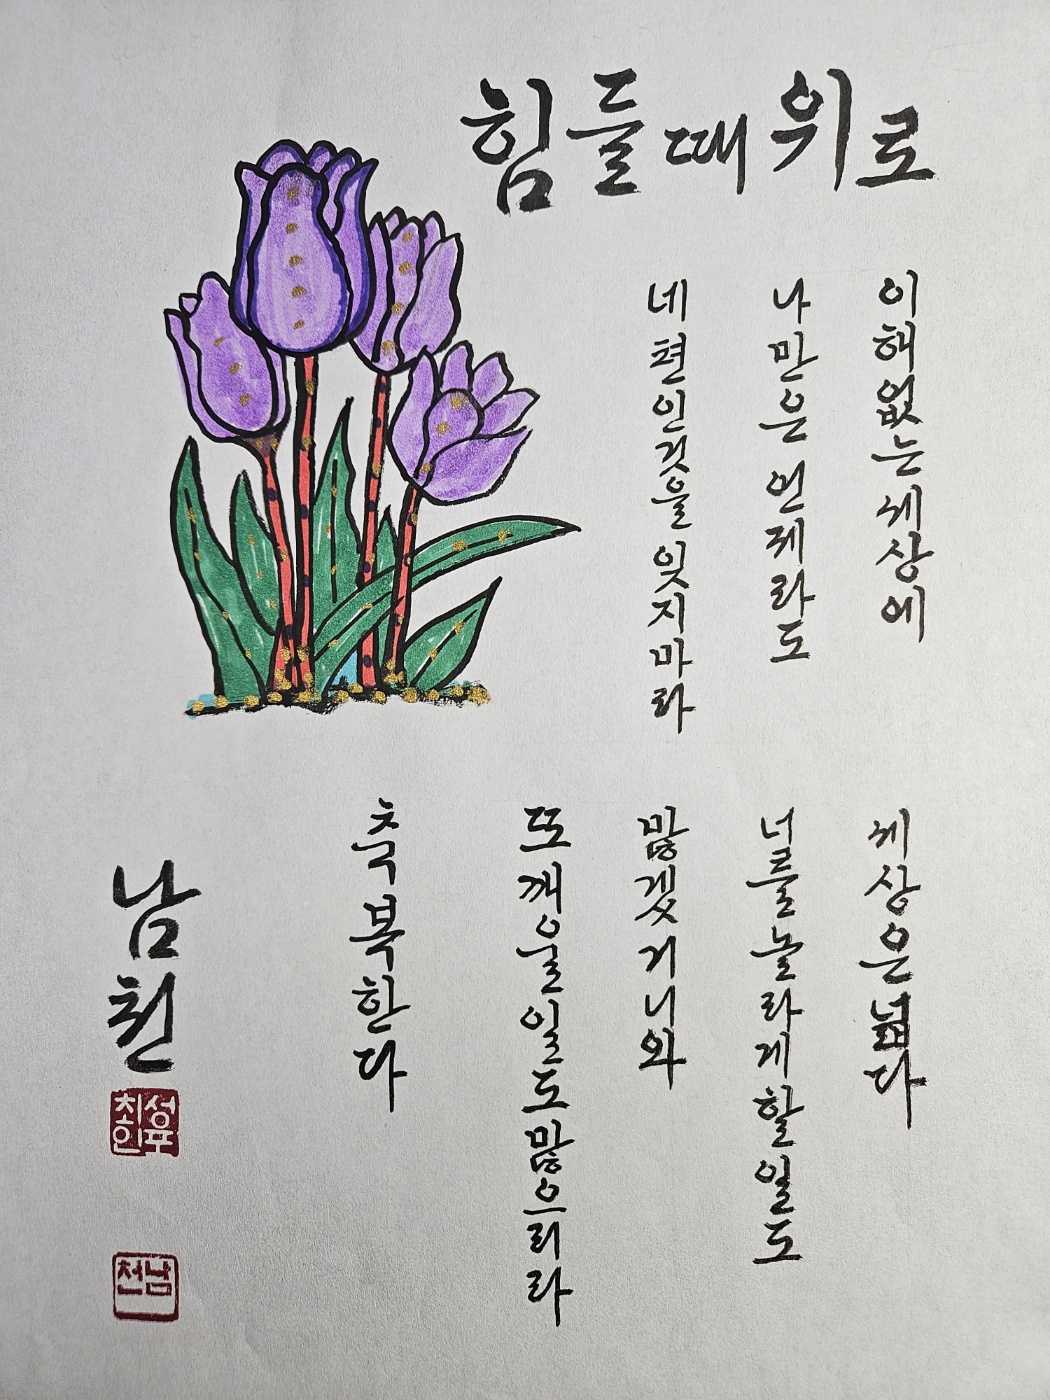 힘들때 위로
이해없는세상에
나만은 언제라도
네편인것을 잊지마라
세상은넓다
너를놀라게할일도
많겠거니와
또깨울일도많으리라
축복한다
남천
남천